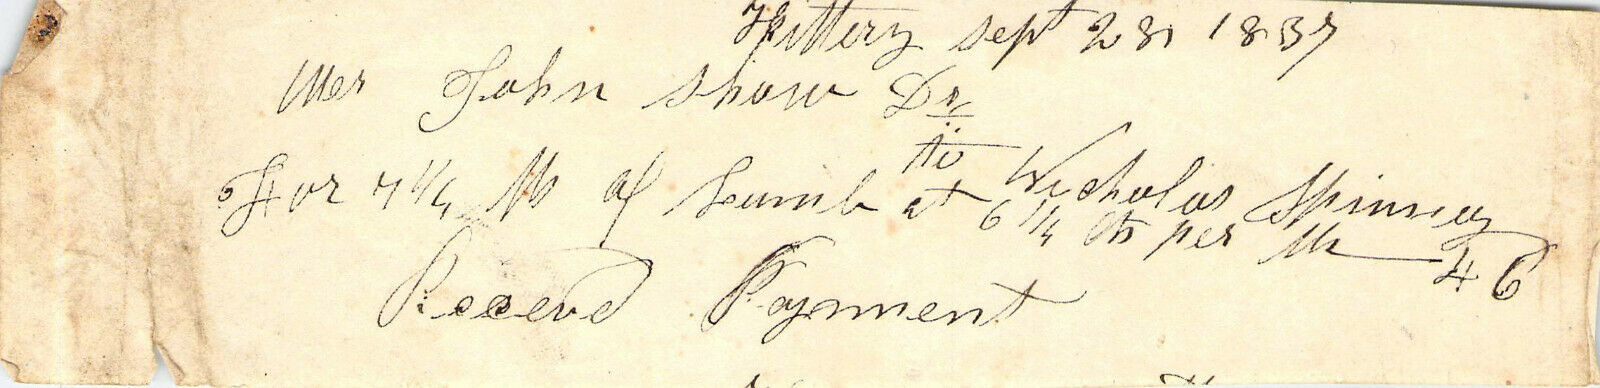 Kittery Sept 28 1837
Mr John Shaw Dr
to Nicholas Spinney
For 7 1/4 lb of Lamb at 6 1/4 cts per lb 46
Receved Payment